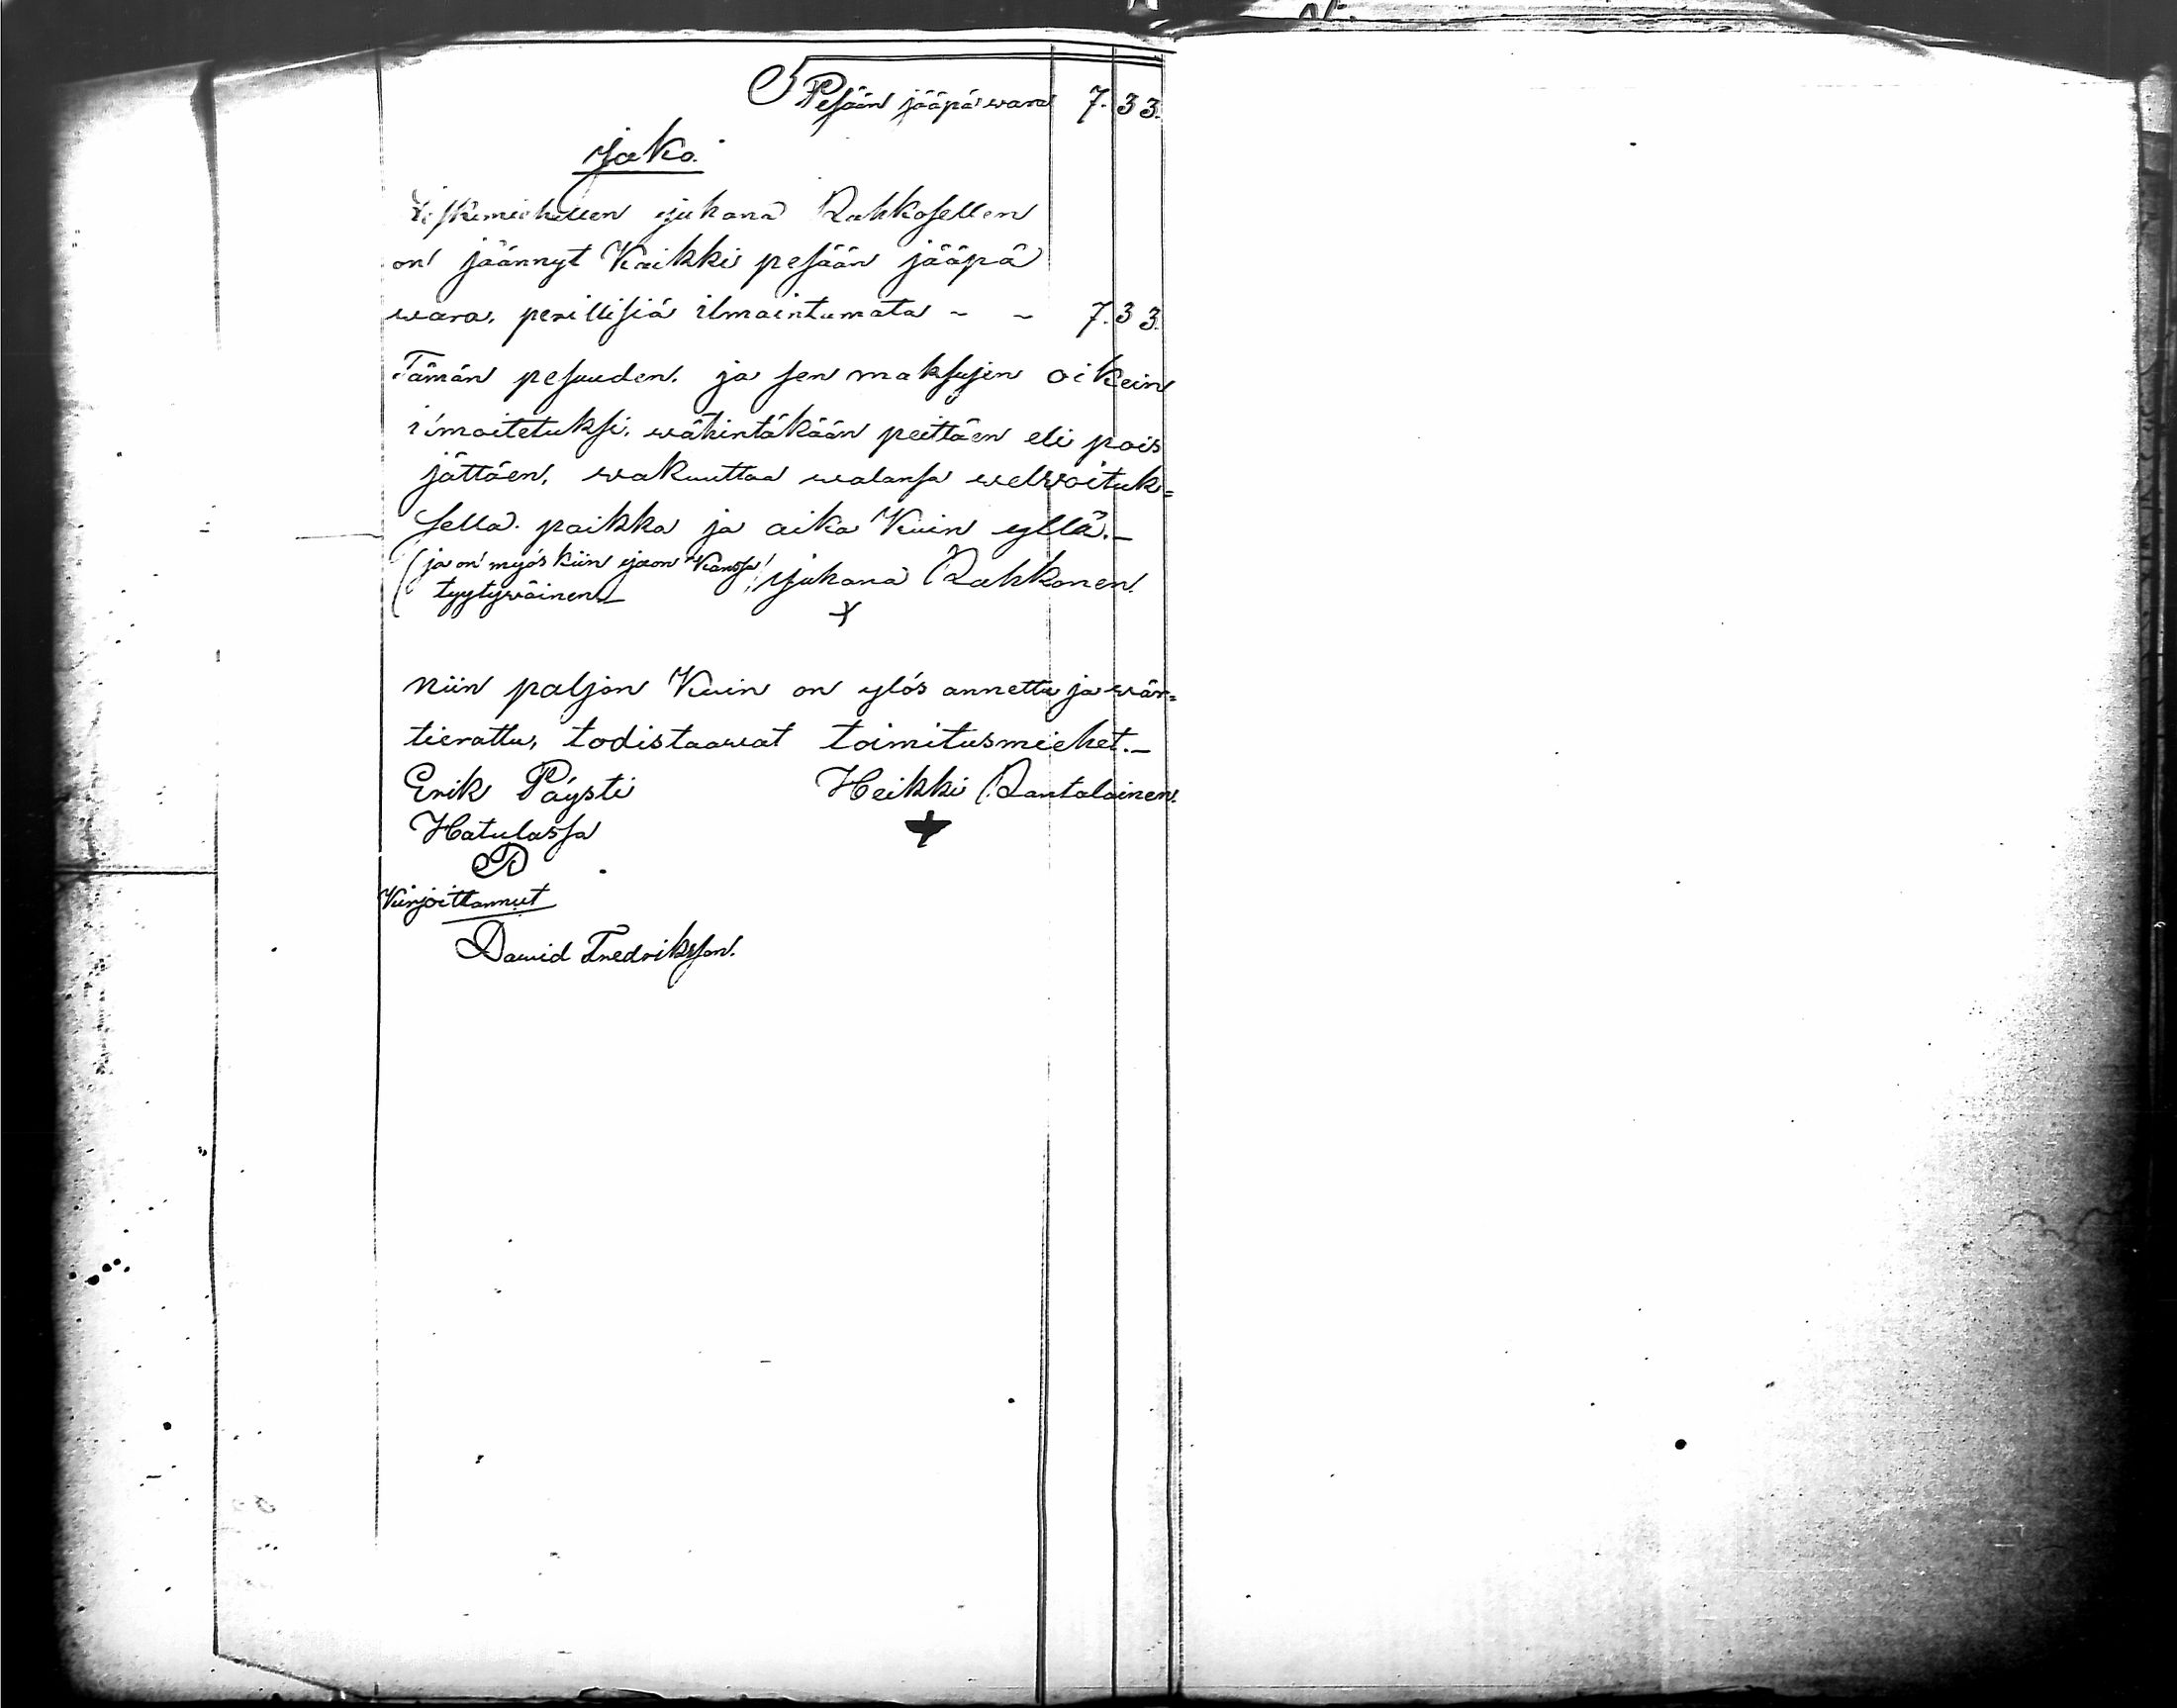 Pesään jääpä wara 7. 33.
Jako.
Leskimiehellen Juhana Rahkosellen
on jäännyt Kaikki pesään jääpä
wara, perillisiä ilmaintumata - - 7. 33.
Tämän pesuuden. ja sen maksujen oikein
ilmoitetuksi. wähintäkään peittäen eli pois
jättäen, wakuuttaa walansa welwoituk=
sella. paikka ja aika Kuin yllä.-
(ja on myös kiin Jaon Kanssa Juhana Rahkonen
tyytywäinen- x
Niin paljon Kuin on ylös annettu ja wär=
tierattu, todistaawat toimitusmiehet.-
Erik Päysti Heikki Rantalainen.
Hatulassa
Kirjoittannut
Dawid Fredriksson.